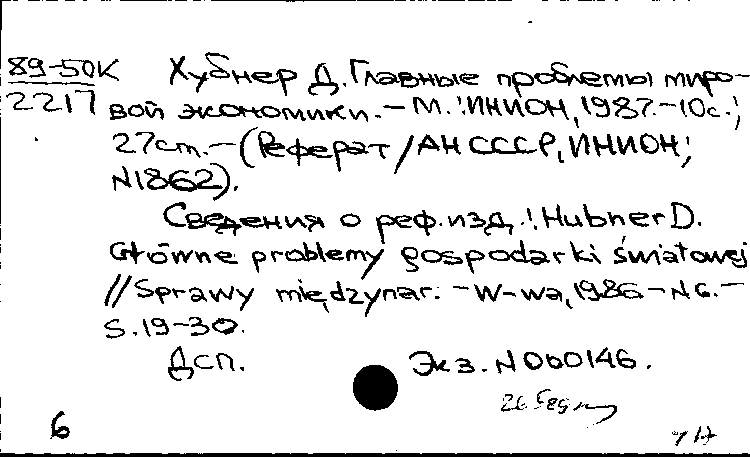 89-50К Хубнер Д. Главные проблемы миро-
2217 вой экономики. - М.: ИНИОН, 1987. - 10с.;
27см. - (Реферат / АН СССР, ИНИОН;
N1862).
Сведения о реф. изд.: Hubner D.
Główne problemy gospodarki światowej
// Sprawy międzynar. - W-wa, 1986 - N6. -
S. 19-30.
Дсп. Экз. N000146.
6